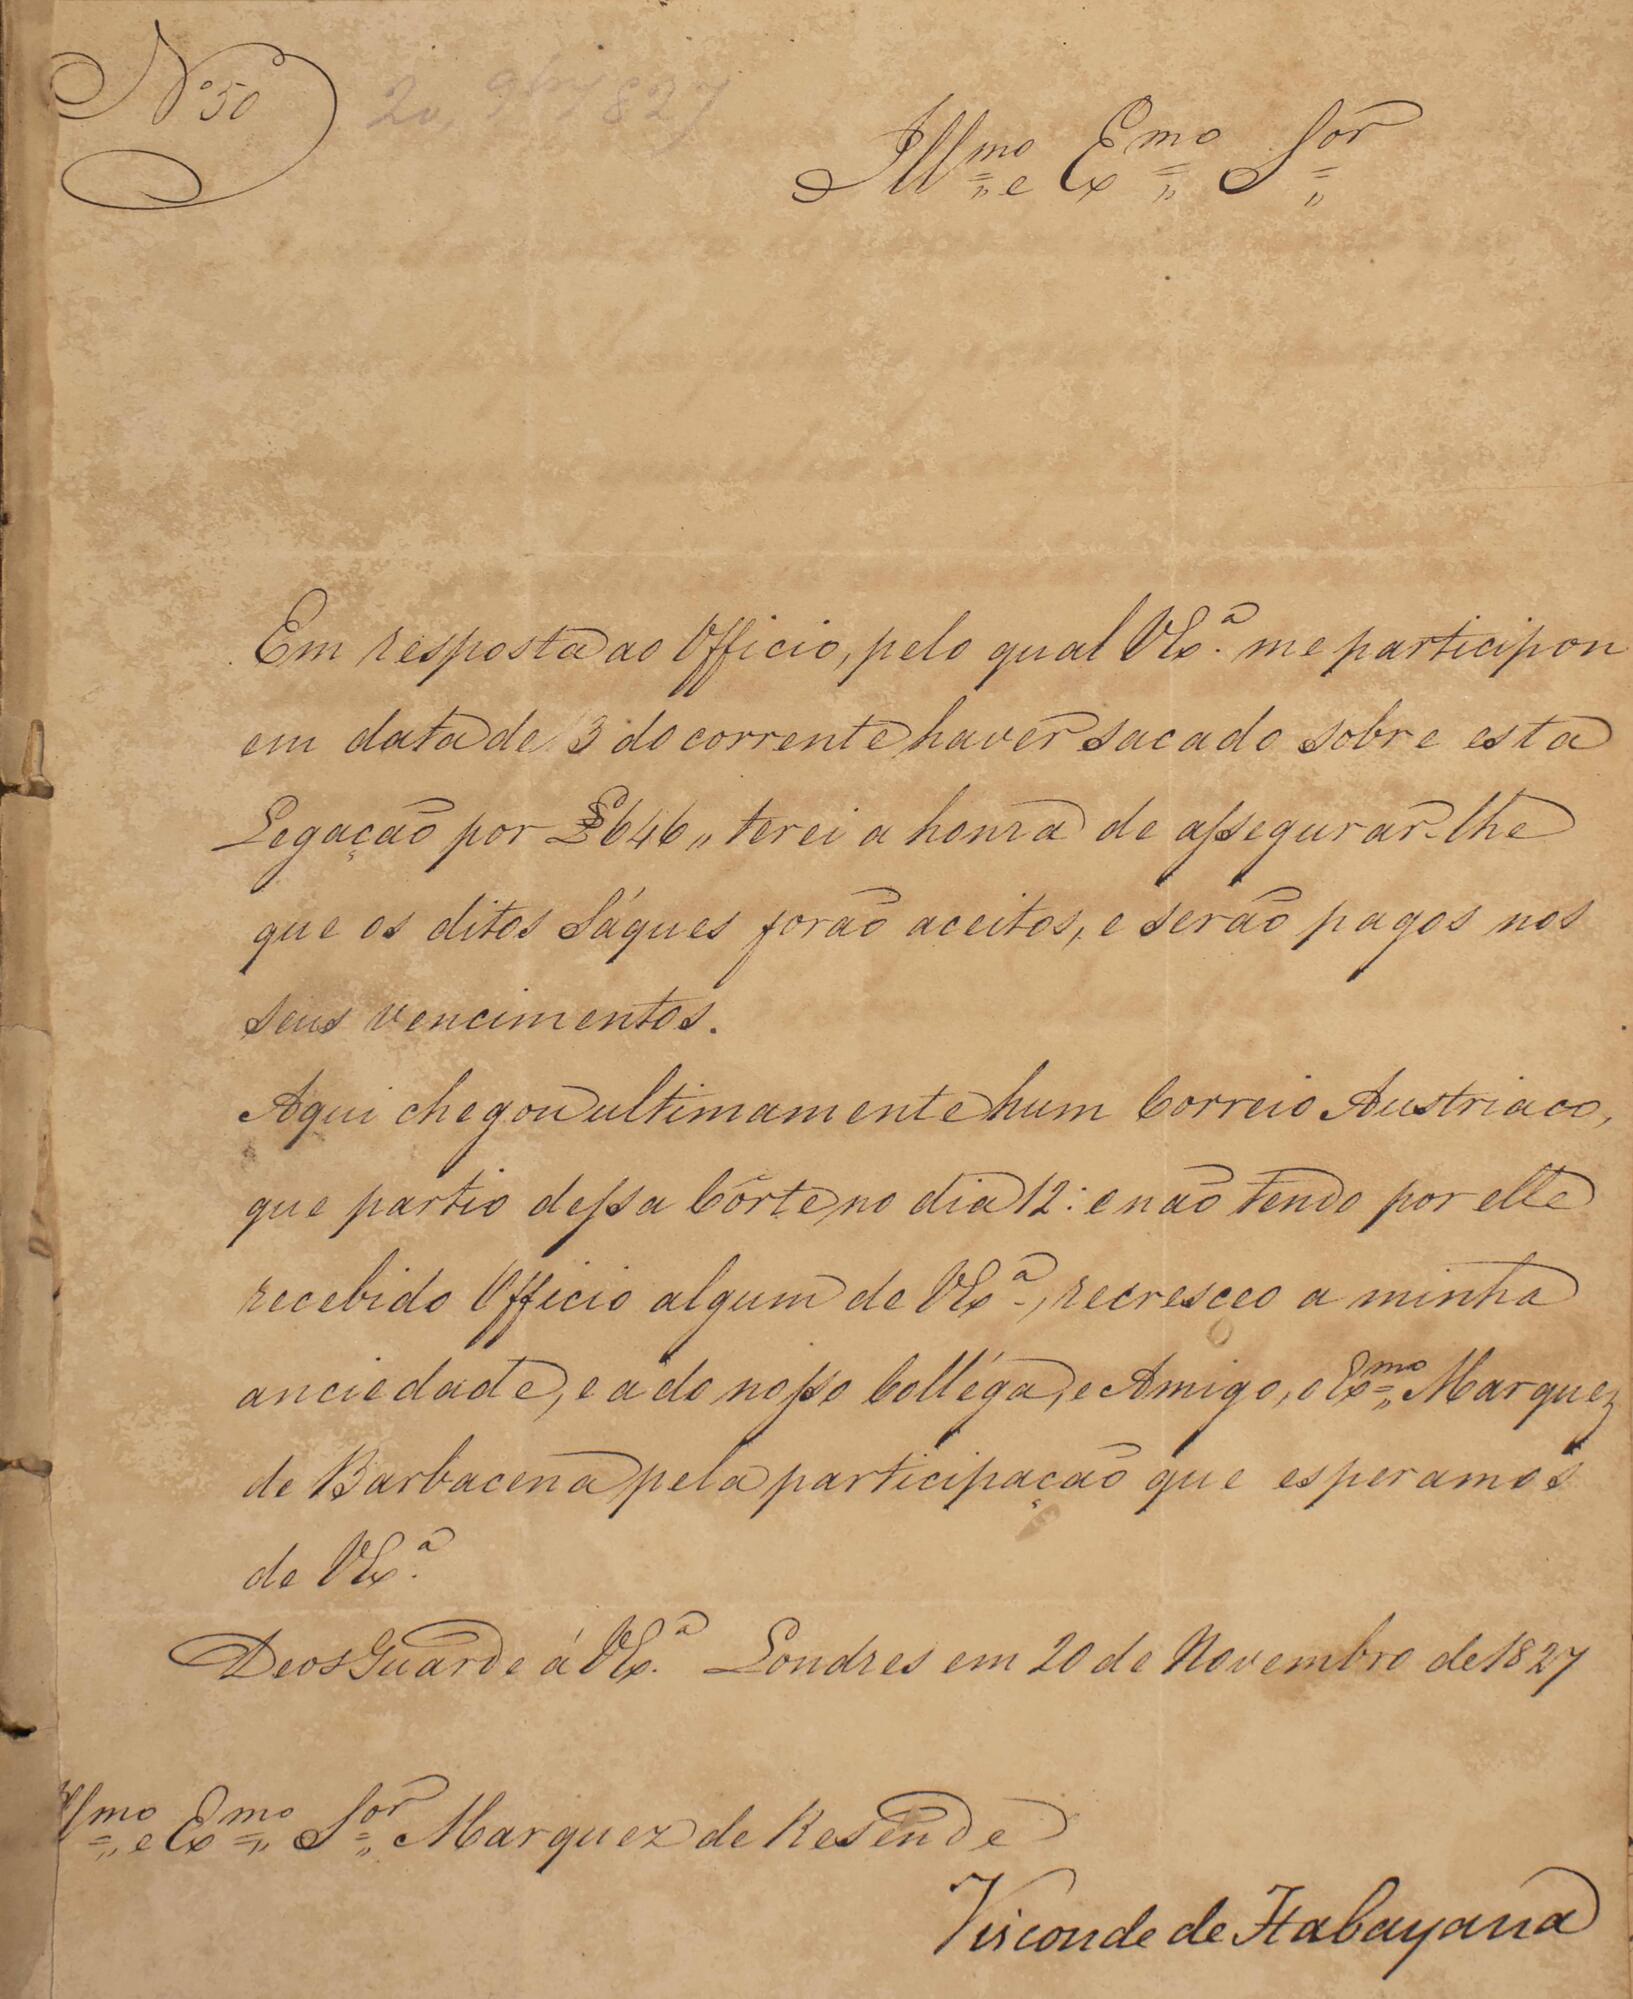 Nº 50
20 9bro 827
Illmo e Exmo Sor
Em resposta ao Officio, pelo qual VExª. me participou
em data de 3 do corrente haver sacado sobre esta
Legação por £646,, terei a honra de assegurar-lhe
que os ditos Sáques forão aceitos, e serão pagos nos
seus vencimentos.
Aqui chegou ultimamente hum Correio Austriaco,
que partio dessa Côrte no dia 12: e não tendo por elle
recebido Officio algum de VExª., recresceo a minha
anciedade, e a do nosso Colléga, e Amigo, o Exmo Marquez
de Barbacena pela participação que esperamos
de VExª.
Deos Guarde á VExª. Londres em 20 de Novembro de 1827
Illmo e Exmo Sor Marquez de Resende
Visconde de Itabayana